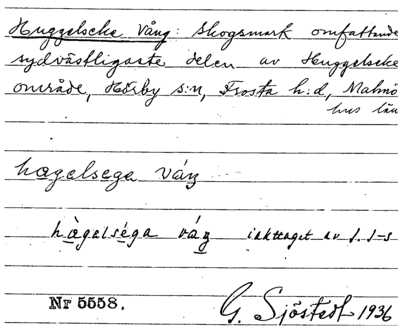 Huggelseke vång: skogsmark omfattande
sydvästligaste delen av Huggelseke
område, Hörby s:n, Frosta h:d, Malmö
hus län
hagelsega váŋ
hàgelséga váŋ iakttaget av J. J-s
Nr 5558.
G. Sjöstedt 1936